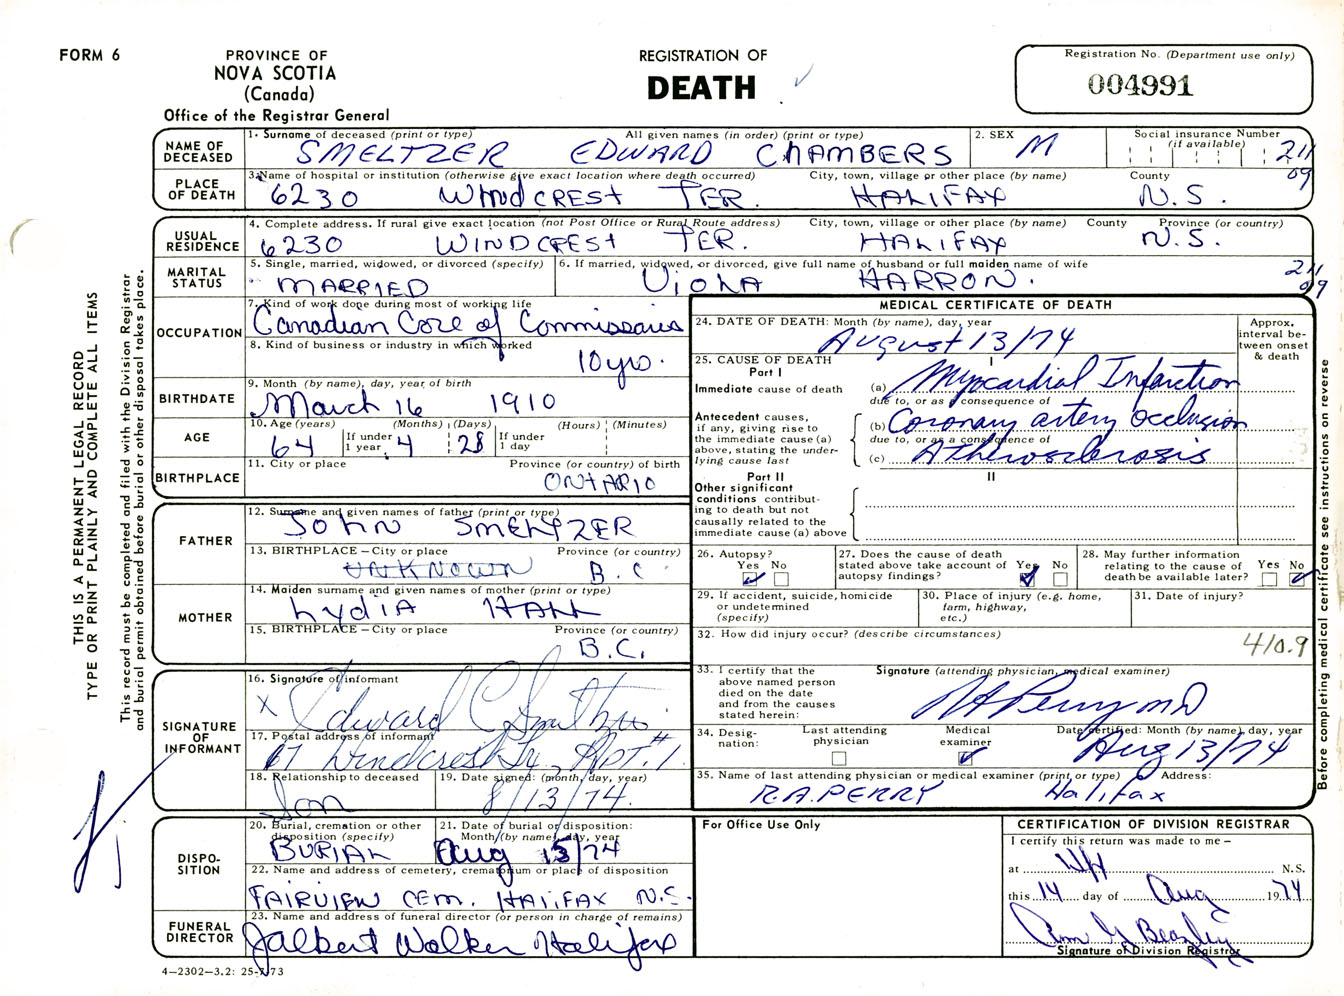 FORM 6
PROVINCE OF
NOVA SCOTIA
(Canada)
Office of the Registrar General
REGISTRATION OF
DEATH
Registration No. (Department use only)
004991
NAME OF DECEASED
1. Surname of deceased (print or type) All given names (in order) (print or type)
SMELTZER EDWARD CHAMBERS
2. SEX
M
Social insurance Number (if available)
211
09
PLACE OF DEATH
3. Name of hospital or institution (otherwise give exact location where death occurred) City, town, village or other place (by name) County
6230 WINDCREST TER. HALIFAX N.S.
USUAL RESIDENCE
4. Complete address. If rural give exact location (not Post Office or Rural Route address) City, town, village or other place (by name) County Province (or country)
6230 WINDCREST TER. HALIFAX N.S.
MARITAL STATUS
5. Single, married, widowed, or divorced (specify)
MARRIED
6. If married, widowed, or divorced, give full name of husband or full maiden name of wife
VIOLA HARRON.
211
09
OCCUPATION
7. Kind of work done during most of working life
Canadian Core of Commissaris
8. Kind of business or industry in which worked
10 yrs.
BIRTHDATE
9. Month (by name), day, year of birth
March 16 1910
AGE
10. Age (years) (Months) (Days) (Hours) (Minutes)
64 If under 1 year 4 28 If under 1 day
BIRTHPLACE
11. City or place Province (or country) of birth
ONTARIO
FATHER
12. Surname and given names of father (print or type)
JOHN SMELTZER
13. BIRTHPLACE – City or place Province (or country)
UNKNOWN B.C
MOTHER
14. Maiden surname and given names of mother (print or type)
LydIA HALL
15. BIRTHPLACE – City or place Province (or country)
B.C.
SIGNATURE OF INFORMANT
16. Signature of informant
X Edward C
17. Postal address of informant
Apt. #1
18. Relationship to deceased
Son
19. Date signed: (month, day, year)
8/13/74.
DISPOSITION
20. Burial, cremation or other disposition (specify)
BURIAL
21. Date of burial or disposition: Month (by name), day, year
Aug 15/74
22. Name and address of cemetery, crematorium or place of disposition
FAIRVIEW CEM. HALIFAX N.S.
FUNERAL DIRECTOR
23. Name and address of funeral director (or person in charge of remains)
Walker Halifax
4–2302–3.2: 25-7-73
MEDICAL CERTIFICATE OF DEATH
24. DATE OF DEATH: Month (by name), day, year
August 13/74
Approx. interval between onset & death
25. CAUSE OF DEATH
Part I I
Immediate cause of death
(a) Myocardial Infarction
due to, or as a consequence of
Antecedent causes, if any, giving rise to the immediate cause (a) above, stating the underlying cause last
(b) Coronary artery occlusion
due to, or as a consequence of
(c) Atherosclerosis
Part II II
Other significant conditions contributing to death but not causally related to the immediate cause (a) above
26. Autopsy?
Yes No
27. Does the cause of death stated above take account of autopsy findings?
Yes No
28. May further information relating to the cause of death be available later?
Yes No
29. If accident, suicide, homicide or undetermined (specify)
30. Place of injury (e.g. home, farm, highway, etc.)
31. Date of injury?
32. How did injury occur? (describe circumstances)
410.9
33. I certify that the above named person died on the date and from the causes stated herein:
Signature (attending physician, medical examiner)
RA Perry MD
34. Designation:
Last attending physician
Medical examiner
Date certified: Month (by name), day, year
Aug 13/74
35. Name of last attending physician or medical examiner (print or type) Address:
R.A. PERRY Halifax
For Office Use Only
CERTIFICATION OF DIVISION REGISTRAR
I certify this return was made to me –
at N.S.
this 14 day of Aug 1974
Signature of Division Registrar
THIS IS A PERMANENT LEGAL RECORD
TYPE OR PRINT PLAINLY AND COMPLETE ALL ITEMS
This record must be completed and filed with the Division Registrar
and burial permit obtained before burial or other disposal takes place.
Before completing medical certificate see instructions on reverse